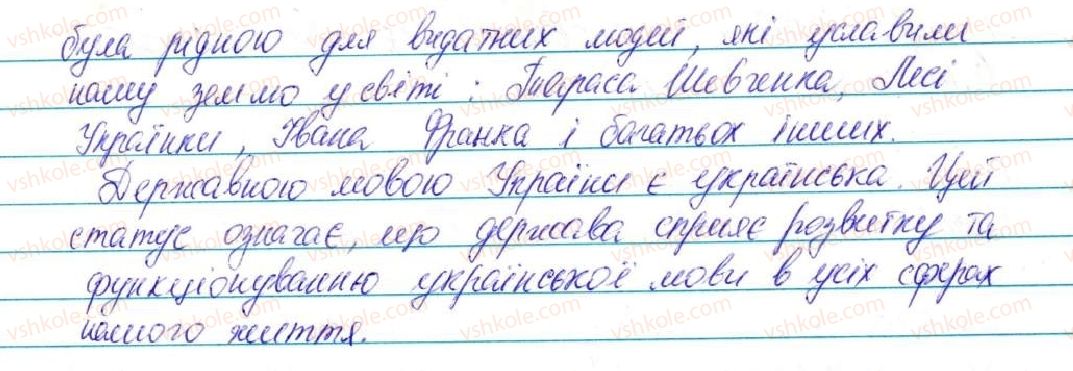 була рідною для видатних людей, які уславили
нашу землю у світі: Тараса Шевченка, Лесі
Українки, Івана Франка і багатьох інших.
Державною мовою України є українська. Цей
статус означає, що держава сприяє розвитку та
функціонуванню української мови в усіх сферах
нашого життя.